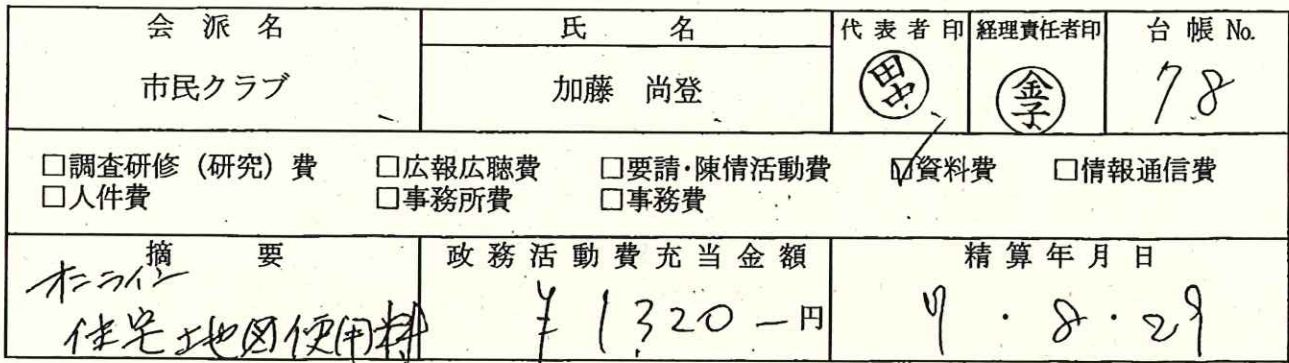 会派名 氏名 代表者印 経理責任者印 台帳No.
市民クラブ 加藤 尚登 田中 金子 78
□調査研修(研究)費 □広報広聴費 □要請・陳情活動費 ☑資料費 □情報通信費
□人件費 □事務所費 □事務費
摘要 政務活動費充当金額 精算年月日
オンライン
住宅地図使用料 ¥1320-円 7・8・29